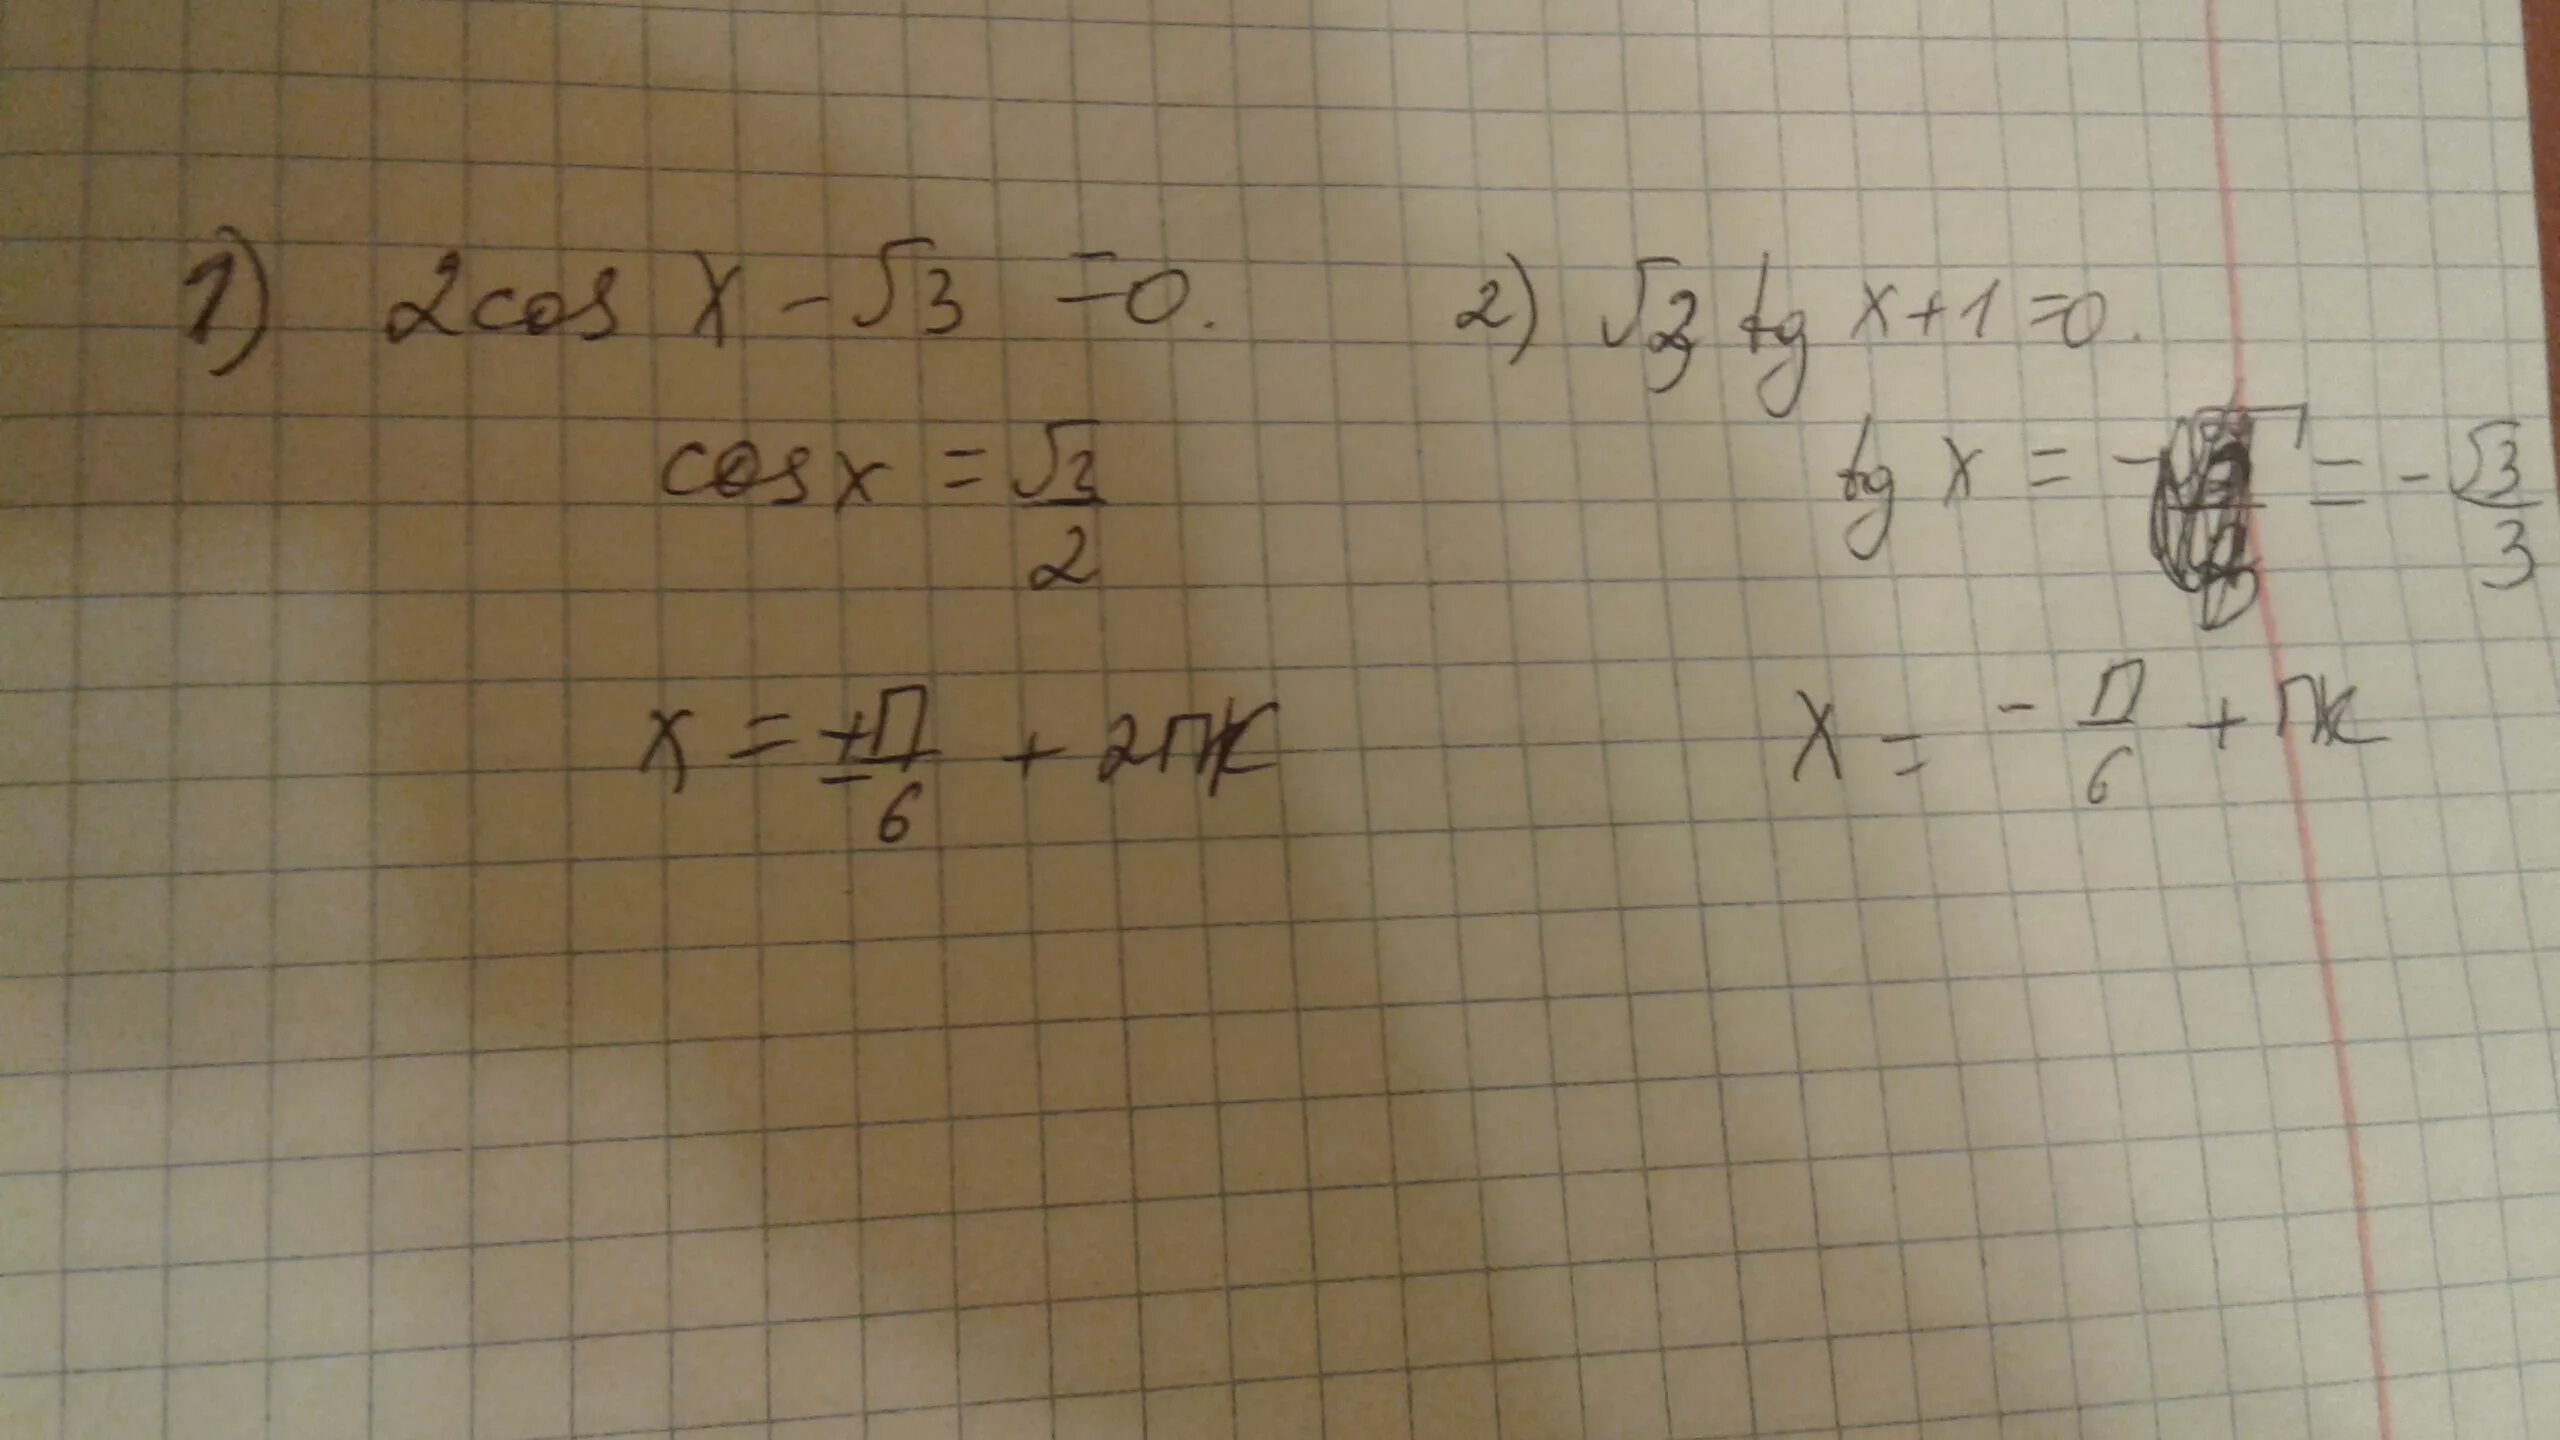 1) 2cos x - √3 = 0.
cos x = √3/2
x = ±П/6 + 2Пк
2) √3 tg x + 1 = 0.
tg x = - = - √3/3
x = - П/6 + Пк